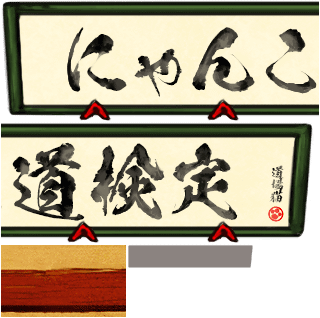 にゃんこ
道検定
道場猫